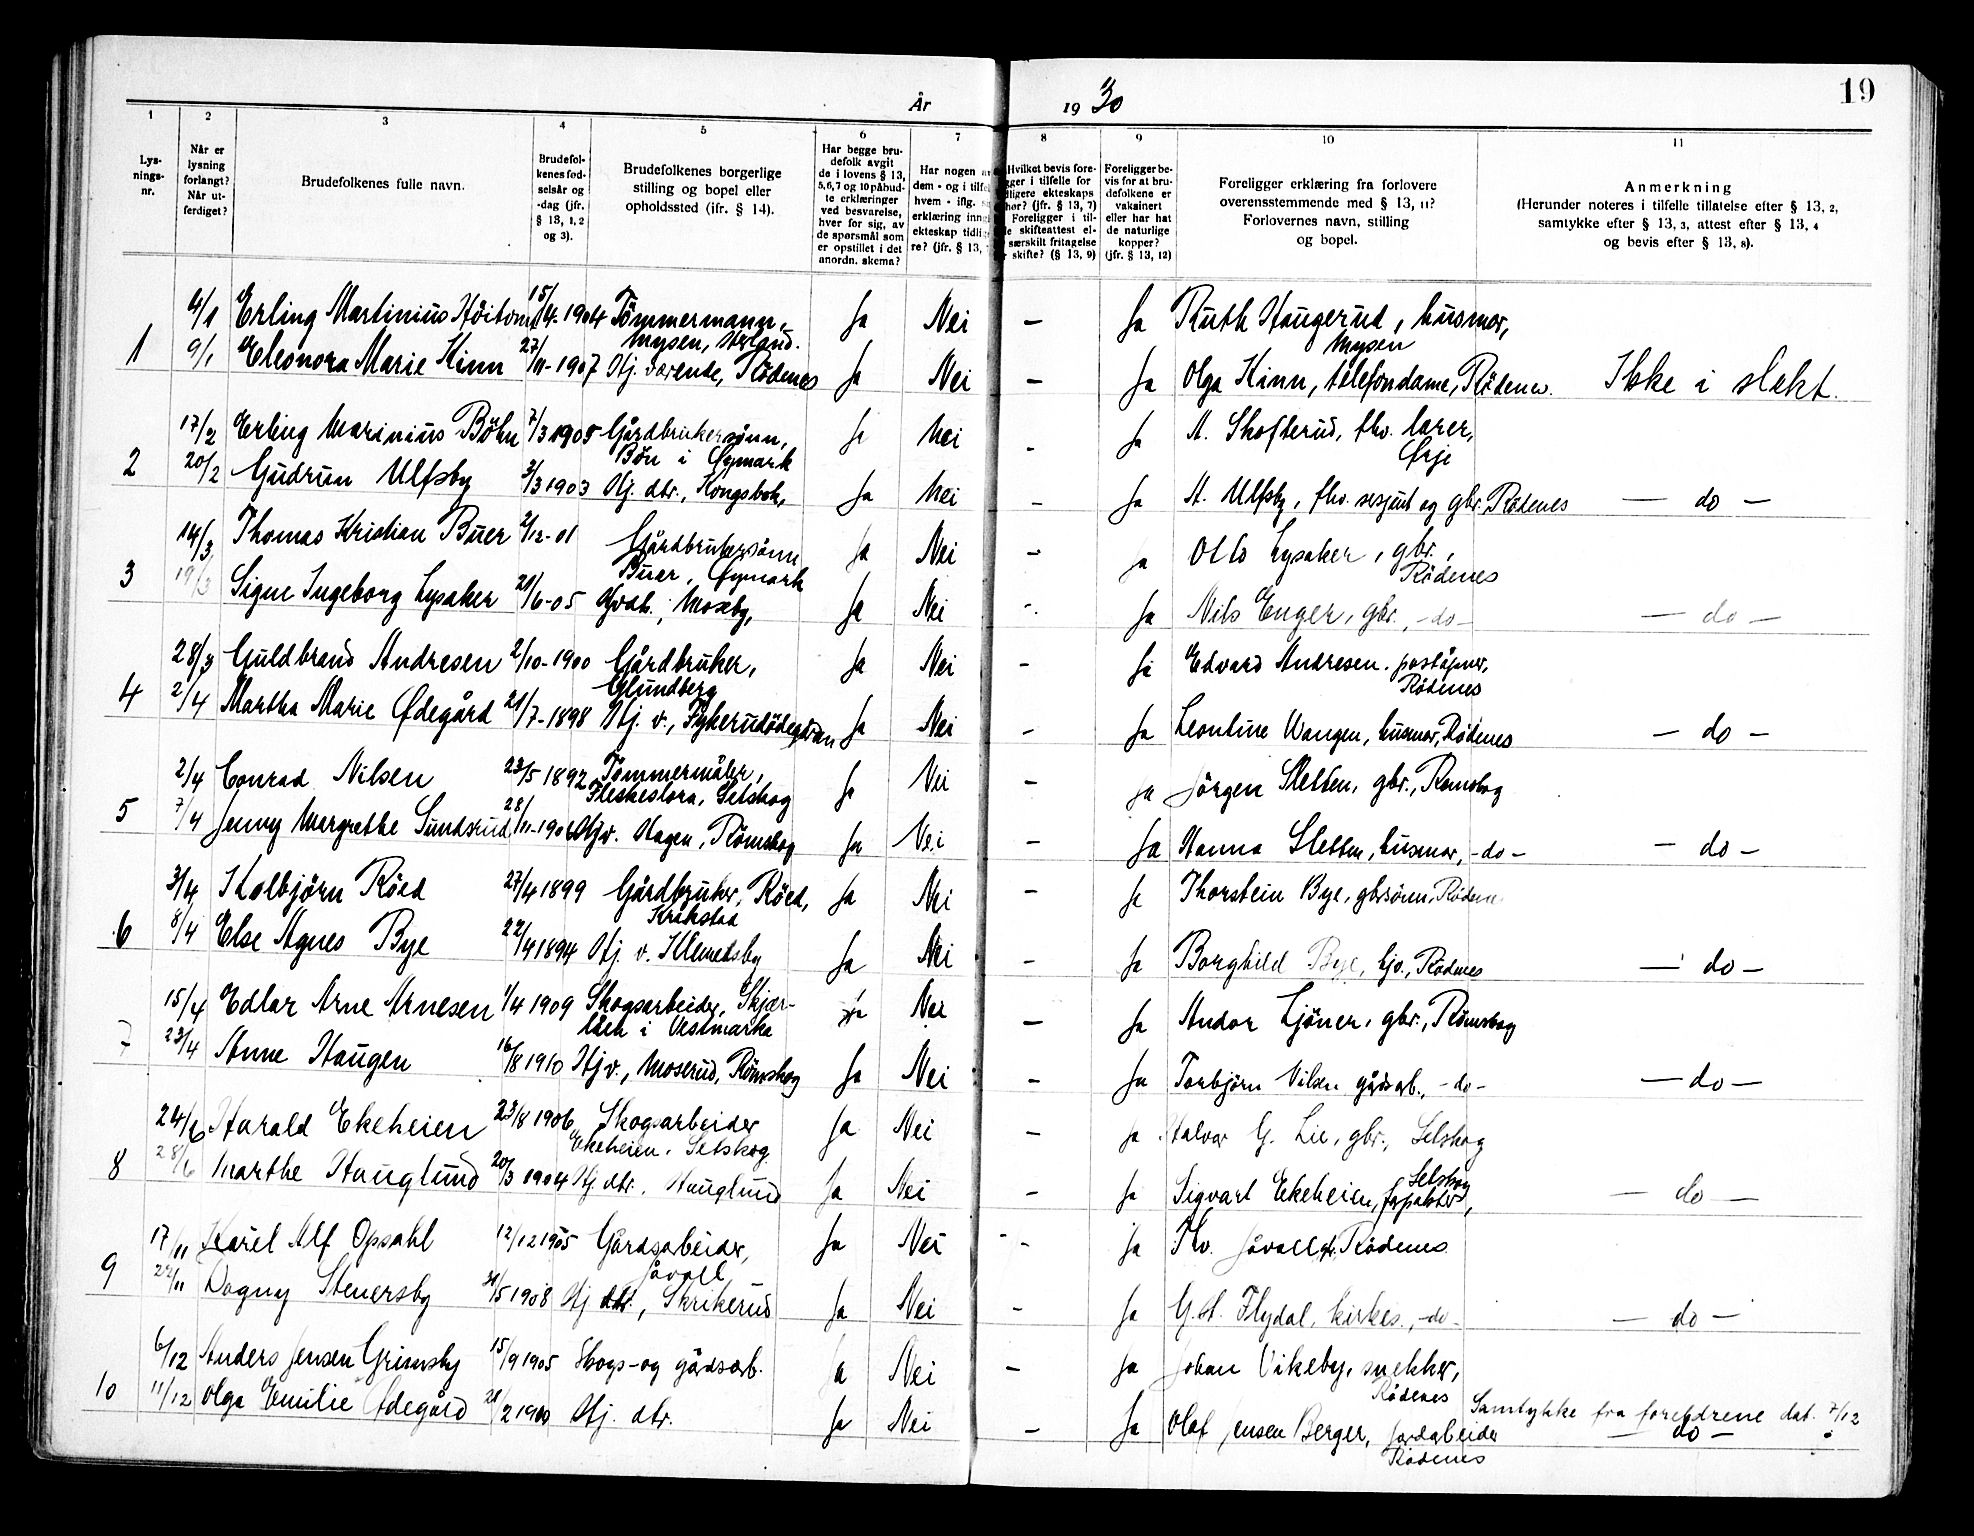 19
År 1930
1 2 3 4 5 6 7 8 9 10 11
Lys-
nings-
nr.
Når er
lysning
forlangt?
Når ut-
ferdiget?
Brudefolkenes fulle navn.
Brudefol-
kenes fød-
selsår og
-dag (jfr.
§ 13, 1, 2
og 3).
Brudefolkenes borgerlige
stilling og bopel eller
opholdssted (ifr. § 14).
Har begge bru-
defolk avgit
de i lovens § 13,
5, 6, 7 og 10 påbud-
te erklæringer
ved besvarelse,
hver for sig, av
de spørsmål som
er opstillet i det
anordn. skema?
Har nogen a
dem - og i tilfe
hvem - iflg.
erklæring inn
ekteskap tidli
re? (jfr. § 13,
Hvilket bevis fore-
gger i tilfelle for
dligere ekteskaps
hør? (jfr. § 13, 7)
Foreligger i til-
le skifteattest el-
særskilt fritagelse
r skifte? (§ 13, 9)
Foreligger be-
vis for at bru-
defolkene er
vaksinert
eller har hat
de naturlige
kopper?
(jfr. § 13, 12)
Foreligger erklæring fra forlovere
overensstemmende med § 13, 11?
Forlovernes navn, stilling
og bopel.
Anmerkning
(Herunder noteres i tilfelle tillatelse efter § 13, 2,
samtykke efter § 13, 3, attest efter § 13, 4
og bevis efter § 13, 8).
4/1 Erling Martinius 15/4-1904 Tömmermann, Ja Nei — Ja Ruth Haugerud, husmor,
Mysen, Mysen
1 9/1 Eleonora Marie Kinn 27/11-1907 Hj. værende, Rödenes Ja Nei — Ja Olga Kinn, telefondame, Rödenes. Ikke i slekt.
17/2 Erling Marinius Böhn 7/3 1905 Gårdbrukersönn, Ja Nei - Ja A. Skofterud, fhv. lærer,
Bön i Öymark Ørje
2 20/2 Gudrun Ulfsby 3/3 1903 Hj. dtr., Ja Nei — Ja A. Ulfsby, fhv. sersjant og gbr. Rödenes — do —
14/3 Thomas Kristian Buer 2/12-01 Gårdbrukersönn Ja Nei - Ja Otto Lysaker, gbr.,
Buer, Öymark Rödenes
3 19/3 Signe Ingeborg Lysaker 21/6-05 Moseby, Ja Nei - Ja Nils Enger, gbr., -do- — do —
28/3 Guldbrand Andresen 2/10-1900 Gårdbruker, Ja Nei - Ja Edvard Andresen. poståpner,
Glundberg Rödenes
4 2/4 Martha Marie Ødegård 21/7-1898 Hj. v., Ja Nei - Ja Leontine Wangen, husmor, Rödenes — do —
2/4 Conrad Nilsen 23/5 1892 Tømmermåler, Ja Nei — ja Jörgen Sletten, gbr., Römskog
Setskog
5 7/4 Jenny Margrethe Sundsrud 28/11-1906 Hjv. Hagen, Römskog Ja Nei — Ja Hanna Sletten, husmor, -do- — do —
3/4 Kolbjörn Röed 27/4 1899 Gårdbruker, Röed, Ja Nei — Ja Thorstein Bye, gbrsönn, Rödenes
Kråkstad
6 8/4 Else Agnes Bye 22/4 1894 Hj. v. Klemetsby Ja Nei — Ja Borghild Bye, hjv., Rödenes — do —
15/4 Edlar Arne Arnesen 1/4 1909 Skogsarbeider, Skjær- Ja Nei — Ja Andor Ljöner, gbr., Römskog
i Vestmarka
7 23/4 Anne Haugen 16/8 1910 Hjv., Moserud, Römskog Ja Nei — Ja Torbjörn Nilsen gårdsarb., -do- — do —
24/6 Harald Ekeheien 23/8 1906 Skogsarbeider Ja Nei — Ja Halvor G. Lie, gbr., Setskog
Ekeheien, Setskog
8 28/6 Marthe Hauglund 20/3 1904 Hj. dtr., Hauglund Ja Nei — Ja Sigvart Ekeheien, forpakter, Setskog — do —
17/11 Karel Alf Opsahl 12/12 1905 Gårdsarbeider, Ja Nei - Ja Kv. Jåvall Rödenes
Jåvall
9 22/11 Dagny Stenersby 31/5 1908 Hj dtr., Skrikerud Ja Nei — Ja G. A. Flydal, kirkes., -do- — do —
6/12 Anders Jensen Grimsby 15/9 1905 Skogs- og gårdsarb. Ja Nei — Ja Johan Vikeby, snekker,
Rödenes
10 11/12 Olga Emilie Ødegård Hj. dtr. Ja Nei — Ja Olaf Jensen Berger, jordarbeider — do —
Rödenes
Samtykke fra foreldrene dat. 7/12